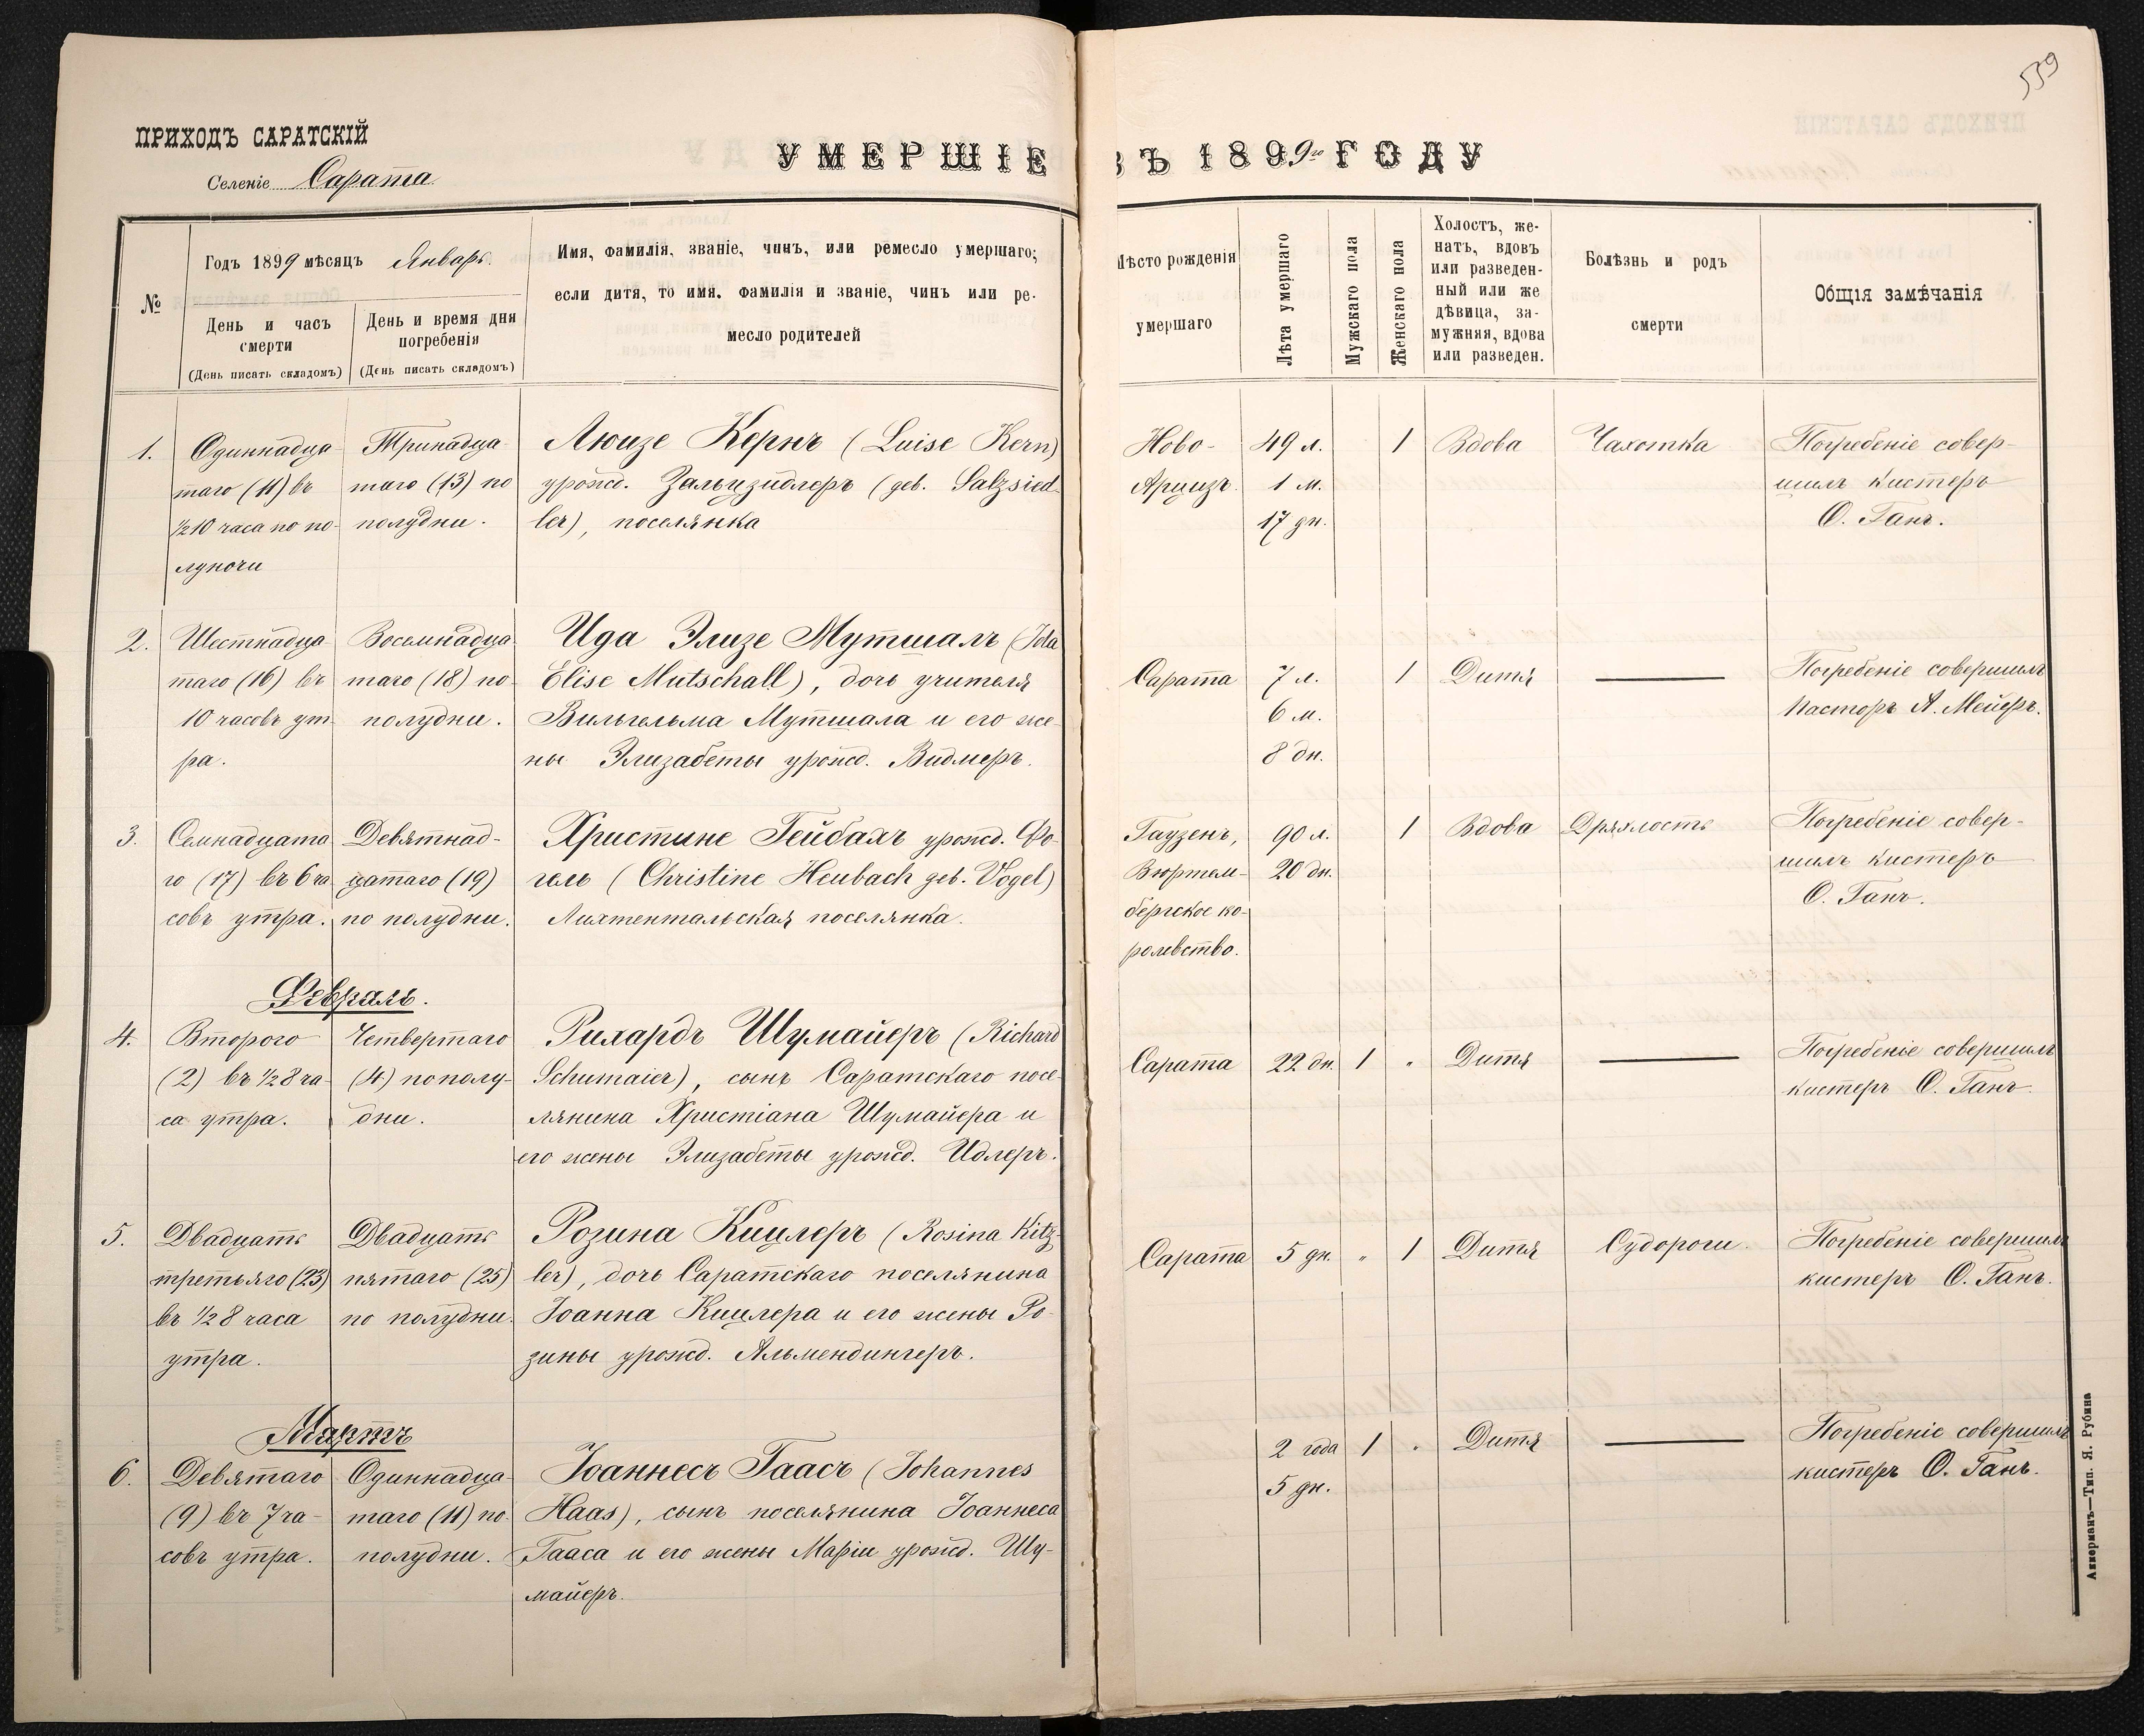 539
ПРИХОДЪ САРАТСКІЙ
Селеніе Сарата.
УМЕРШІЕ ВЪ 1899го ГОДУ
№
Годъ 1899 мѣсяцъ Январь.
День и часъ смерти
(День писать складомъ)
День и время дня погребенія
(День писать складомъ)
Имя, фамилія, званіе, чинъ, или ремесло умершаго;
если дитя, то имя, фамилія и званіе, чинъ или ре-
месло родителей
Мѣсто рожденія
умершаго
Лѣта умершаго
Мужскаго пола
Женскаго пола
Холостъ, же-
натъ, вдовъ
или разведен-
ный или же
дѣвица, за-
мужняя, вдова
или разведен.
Болѣзнь и родъ
смерти
Общія замѣчанія
1.
Одиннадца-
таго (11) въ
½10 часа по по-
луночи
Тринадца-
таго (13) по
полудни.
Люизе Кернъ (Luise Kern)
урожд. Зальцзидлеръ (geb. Salzsied-
ler), поселянка
Ново-
Арцизъ.
49 л.
1 м.
17 дн.
1
Вдова
Чахотка
Погребеніе совер-
шилъ кистеръ
О. Ганъ.
2.
Шестнадца-
таго (16) въ
10 часовъ ут-
ра.
Восемнадца-
таго (18) по-
полудни.
Ида Элизе Мутшалъ (Ida
Elise Mutschall), дочь учителя
Вильгельма Мутшала и его же-
ны Элизабеты урожд. Видмеръ.
Сарата
7 л.
6 м.
8 дн.
1
Дитя
—
Погребеніе совершилъ
пасторъ А. Мейеръ.
3.
Семнадцата-
го (17) въ 6 ча-
совъ утра.
Девятнад-
цатаго (19)
по полудни.
Христине Гейбахъ урожд. Фо-
гель (Christine Heubach geb. Vogel)
Лихтентальская поселянка.
Гаузенъ,
Вюртем-
бергское ко-
ролевство.
90 л.
20 дн.
1
Вдова
Дряхлость
Погребеніе совер-
шилъ кистеръ
О. Ганъ.
Февраль.
4.
Второго
(2) въ ½8 ча-
са утра.
Четвертаго
(4) по полу-
дни.
Рихардъ Шумайеръ (Richard
Schumaier), сынъ Саратскаго посе-
лянина Христіана Шумайера и
его жены Элизабеты урожд. Идлеръ.
Сарата
22 дн.
1
"
Дитя
—
Погребеніе совершилъ
кистеръ О. Ганъ.
5.
Двадцать
третьяго (23)
въ ½8 часа
утра.
Двадцать
пятаго (25)
по полудни.
Розина Кицлеръ (Rosina Kitz-
ler), дочь Саратскаго поселянина
Іоанна Кицлера и его жены Ро-
зины урожд. Альмендингеръ.
Сарата
5 дн.
"
1
Дитя
Судороги.
Погребеніе совершилъ
кистеръ О. Ганъ.
Мартъ
6.
Девятаго
(9) въ 7 ча-
совъ утра.
Одиннадца-
таго (11) по-
полудни.
Іоаннесъ Гаасъ (Johannes
Haas), сынъ поселянина Іоаннеса
Гааса и его жены Маріи урожд. Шу-
майеръ.
2 года
5 дн.
1
"
Дитя
—
Погребеніе совершилъ
кистеръ О. Ганъ.
Аккерманъ—Тип. Я. Рубина